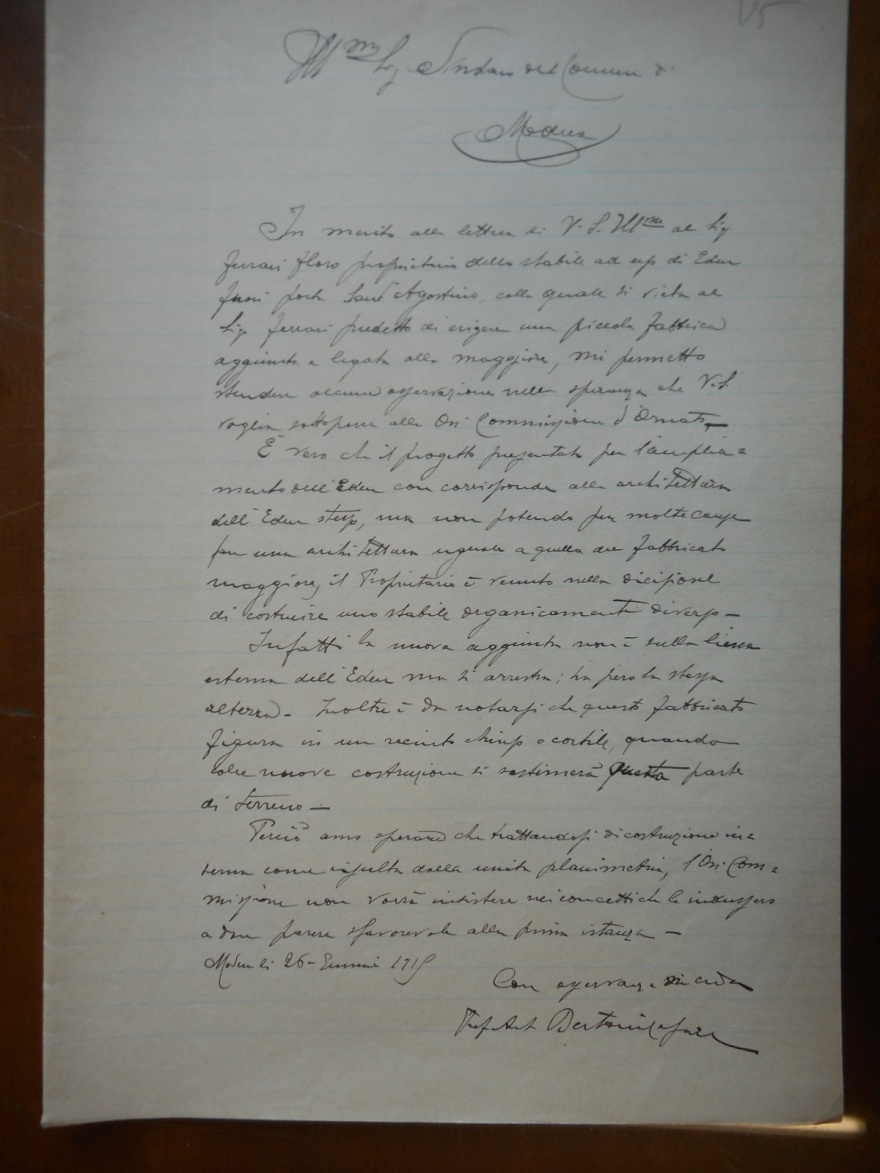 Ill.mo Sig. Sindaco del Comune di
Modena
In merito alla lettera di V. S. Ill.ma al Sig
Ferrari Floro proprietario dello stabile ad uso di Eden
fuori porta Sant'Agostino, colla quale si vieta al
Sig. Ferrari predetto di erigere una piccola fabbrica
aggiunta e legata alla maggiore, mi permetto
stendere alcune osservazione nella speranza che V.S
voglia sottoporre alla On Commissione d'Ornato_
È vero che il progetto presentato per l'amplia=
mento dell'Eden non corrisponde alla architettura
dell'Eden stesso, ma non potendo per molte cause
fare una architettura uguale a quella del fabbricato
maggiore, il Proprietario è venuto nella decisione
di costruire uno stabile organicamente diverso_
Infatti la nuova aggiunta non è sulla linea
esterna dell'Eden ma si arresta; ha però la stessa
altezza_ Inoltre è da notarsi che questo fabbricato
figura in un recinto chiuso o cortile, quando
colle nuove costruzione si sistemerà questa parte
di terreno_
Perciò amo sperare che trattandosi di costruzione in=
terna come risulta dalla unita planimetria, l'On: Com=
missione non vorrà insistere nei concetti che la indussero
a dare parere sfavorevole alla prima istanza_
Modena li 26- 1915
Con osservanza
Prof. Arch